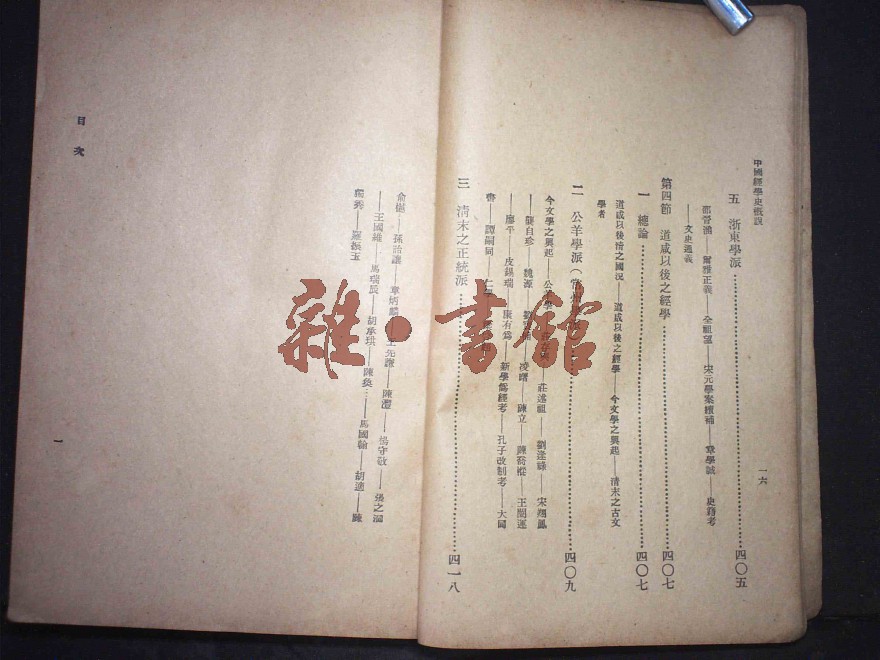 中國經學史概說
一六
五 浙東學派……四〇五
邵晉涵——爾雅正義——全祖望——宋元學案續補——章學誠——史籍考
——文史通義
第四節 道咸以後之經學……四〇七
一 總論……四〇七
道咸以後清之國況——道咸以後之經學——今文學之興起——清末之古文
學者
二 公羊學派(常州 ……四〇九
今文學之興起——公羊學 莊述祖——劉逢祿——宋翔鳳
——龔自珍——魏源 凌曙——陳立——陳喬樅——王闓運
——廖平——皮錫瑞——康有爲——新學僞經考——孔子改制考——大同
書——譚嗣同——仁學
三 清末之正統派……四一八
俞樾——孫詒讓——章炳麟 王先謙——陳澧——楊守敬——張之洞
——王國維——馬瑞辰——胡承珙——陳奐——馬國翰——胡適——陳
獨秀——羅振玉
目次
一
雜·書館